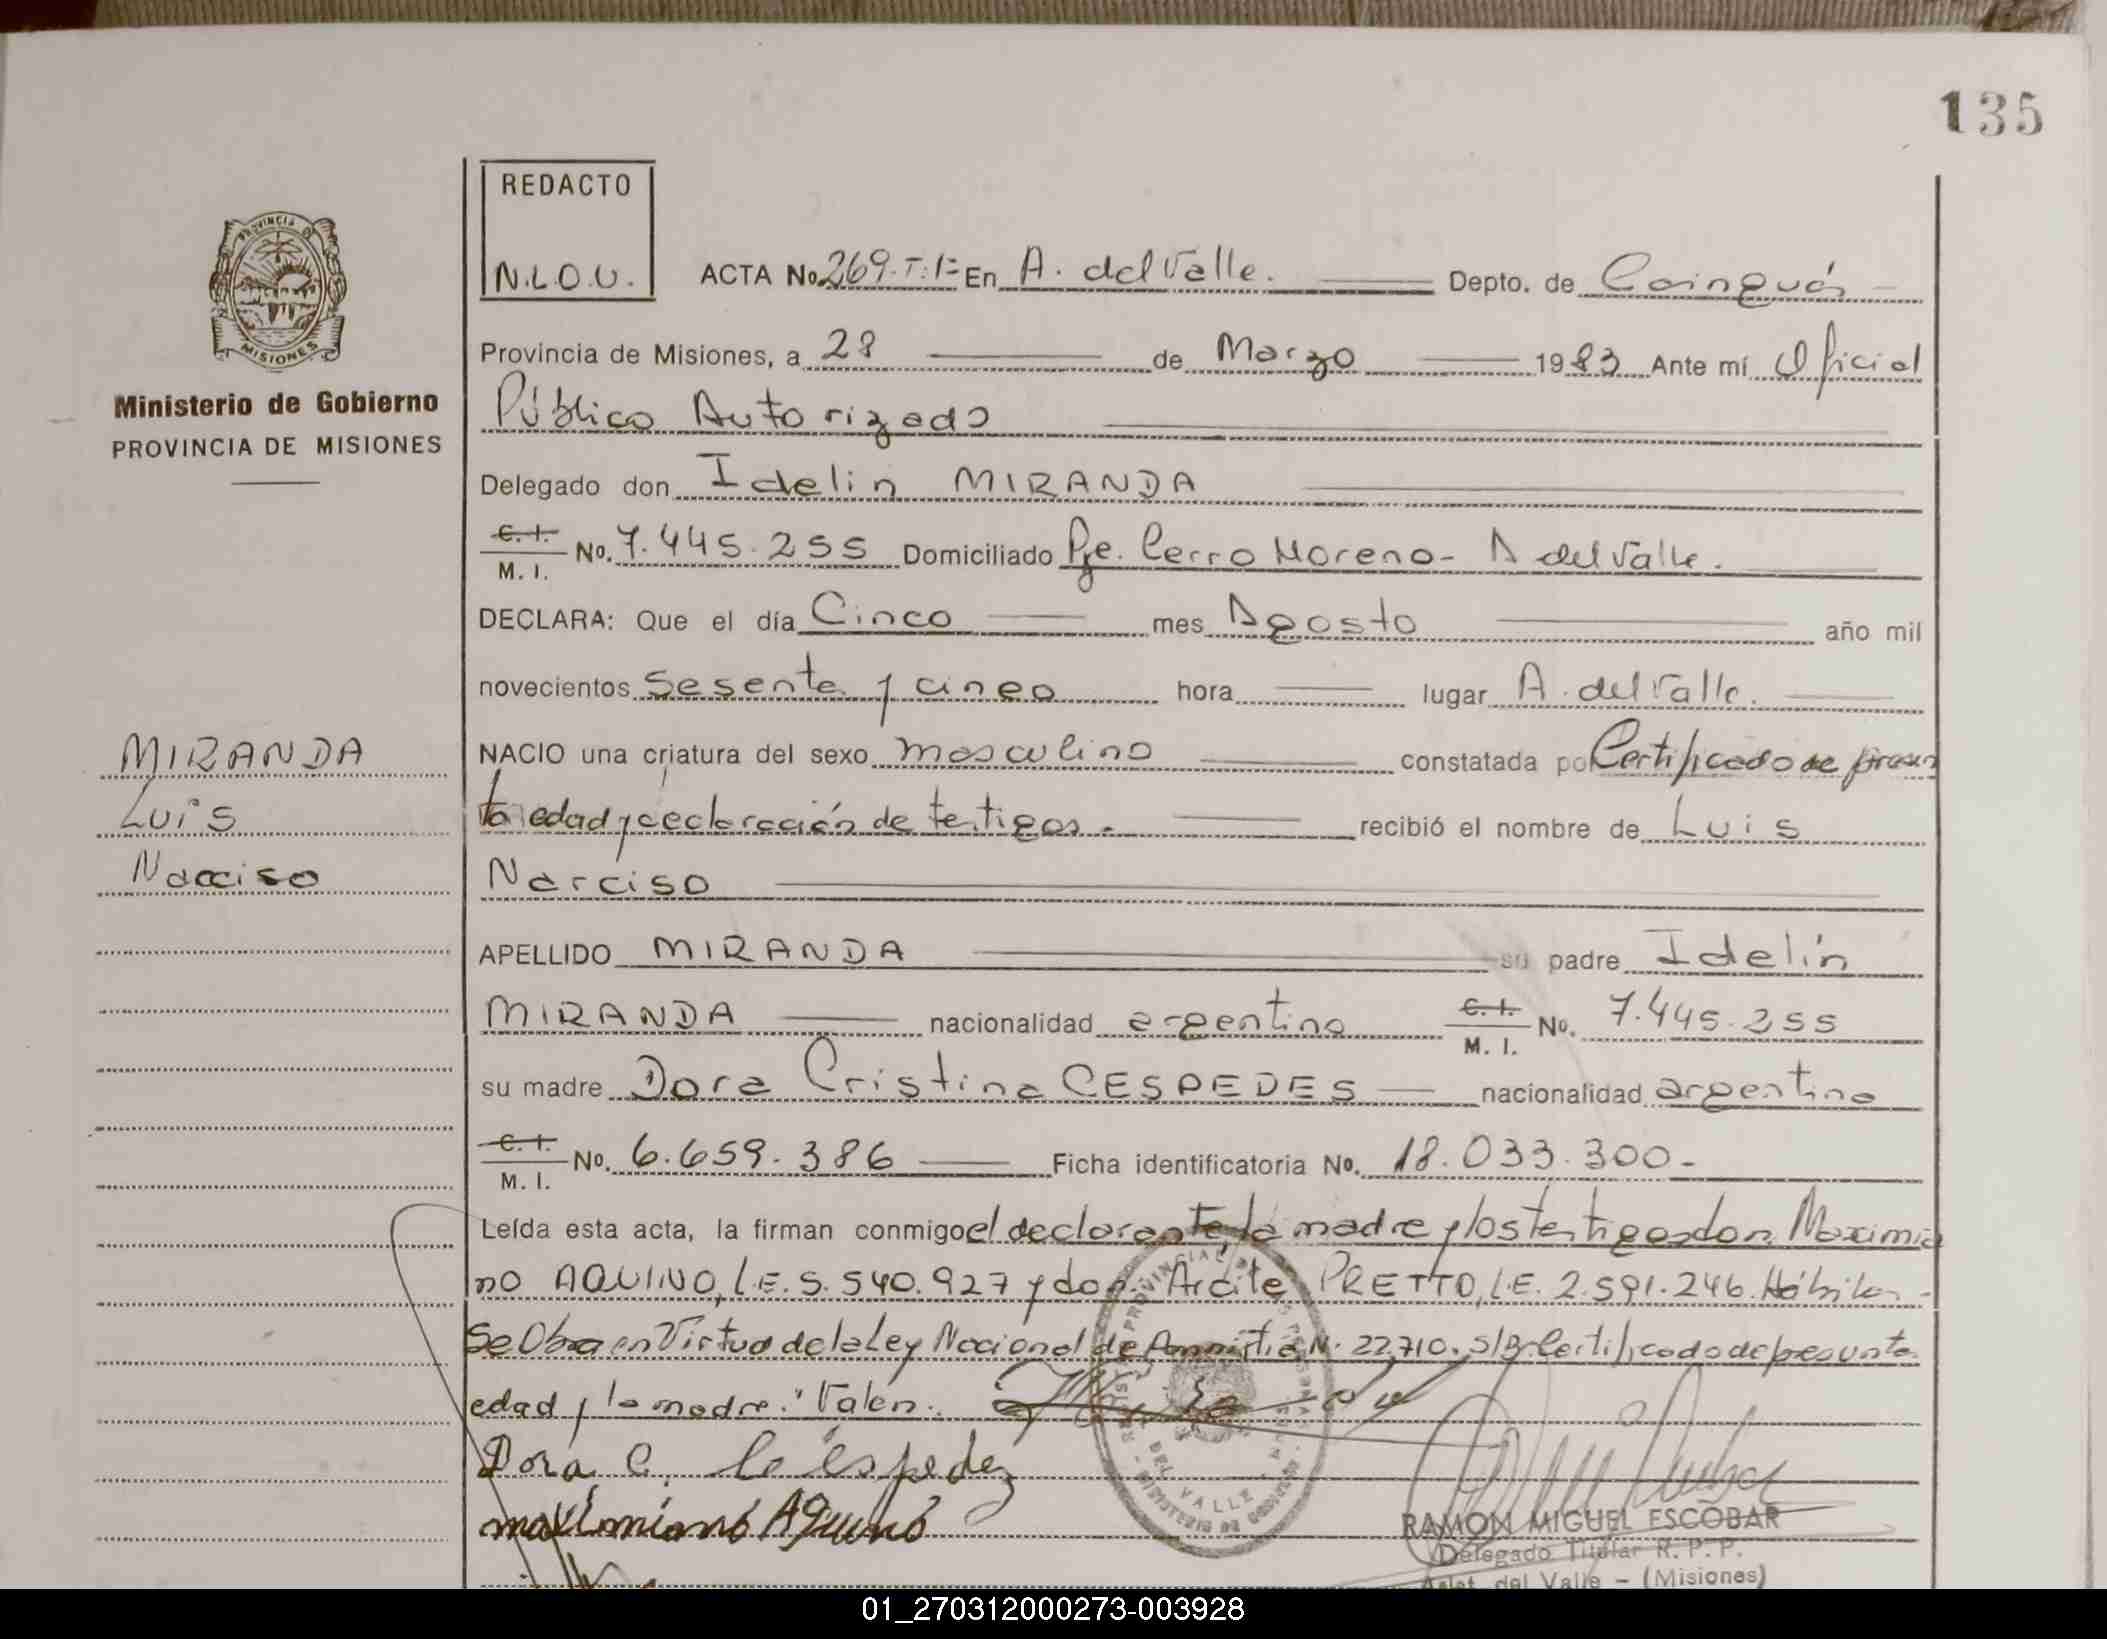 135
REDACTO
N.L.O.U.
PROVINCIA D
MISIONES
Ministerio de Gobierno
PROVINCIA DE MISIONES
ACTA No. 269-T:1= En A. del Valle. Depto. de Cainguás
Provincia de Misiones, a 28 de Marzo 1983 Ante mí Oficial
Público Autorizado
Delegado don Idelin MIRANDA
C. I.
M. I. No. 7.445.255 Domiciliado Pje. Cerro Moreno- A del Valle.
DECLARA: Que el día Cinco mes Agosto año mil
novecientos Sesenta y cinco hora lugar A. del Valle.
NACIO una criatura del sexo masculino constatada por Certificado de presun
ta edad y declaración de testigos. recibió el nombre de Luis
Narciso
MIRANDA
Luis
Narciso
APELLIDO MIRANDA su padre Idelín
MIRANDA nacionalidad argentina C. I.
M. I. No. 7.445.255
su madre Dora Cristina CESPEDES nacionalidad argentina
C. I.
M. I. No. 6.659.386 Ficha identificatoria No. 18.033.300-
Leída esta acta, la firman conmigo el declarante, la madre y los testigos don Maximia
no AQUINO, L.E. 5.540.927 y don Arcite PRETTO, L.E. 2.591.246. Hábiles-
Se Obra en Virtud de la Ley Nacional de Amnistía N. 22.710. S/B: Certificado de presunta
edad y la madre: Valen.
Dora C. Céspedez
maximiano Aquino
DEL VALLE
RAMON MIGUEL ESCOBAR
Delegado Titular R. P. P.
Arist. del Valle - (Misiones)
01_270312000273-003928